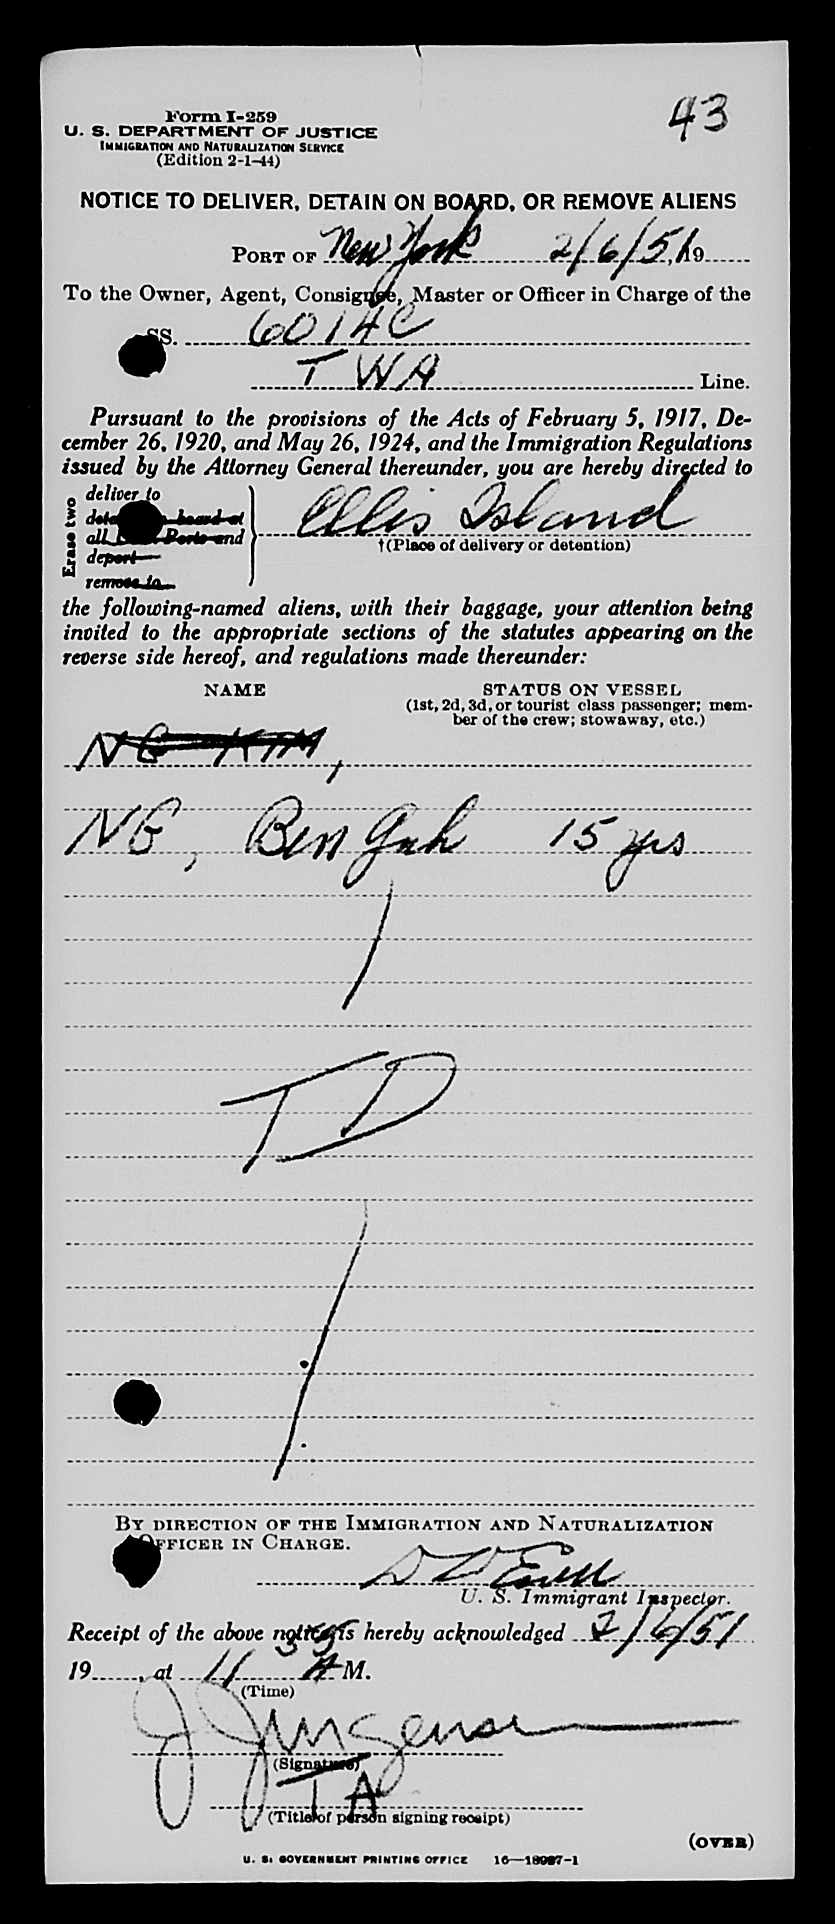 43
Form I-259
U. S. DEPARTMENT OF JUSTICE
IMMIGRATION AND NATURALIZATION SERVICE
(Edition 2-1-44)
NOTICE TO DELIVER, DETAIN ON BOARD, OR REMOVE ALIENS
PORT OF New York 2/6/51, 19
To the Owner, Agent, Consignee, Master or Officer in Charge of the
SS. 6014C
TWA Line.
Pursuant to the provisions of the Acts of February 5, 1917, De-
cember 26, 1920, and May 26, 1924, and the Immigration Regulations
issued by the Attorney General thereunder, you are hereby directed to
Erase two
deliver to
board at
all Ports and
deport
remove to
Ellis Island
†(Place of delivery or detention)
the following-named aliens, with their baggage, your attention being
invited to the appropriate sections of the statutes appearing on the
reverse side hereof, and regulations made thereunder:
NAME STATUS ON VESSEL
(1st, 2d, 3d, or tourist class passenger; mem-
ber of the crew; stowaway, etc.)
NG KIM,
NG, Ben Gah 15 yrs
TD
BY DIRECTION OF THE IMMIGRATION AND NATURALIZATION
OFFICER IN CHARGE.
U. S. Immigrant Inspector.
Receipt of the above notice is hereby acknowledged 2/6/51
19, at 11 55 A M.
(Time)
J Jurgensen
(Signature)
TA
(Title of person signing receipt)
(OVER)
U. S. GOVERNMENT PRINTING OFFICE 16—18987-1